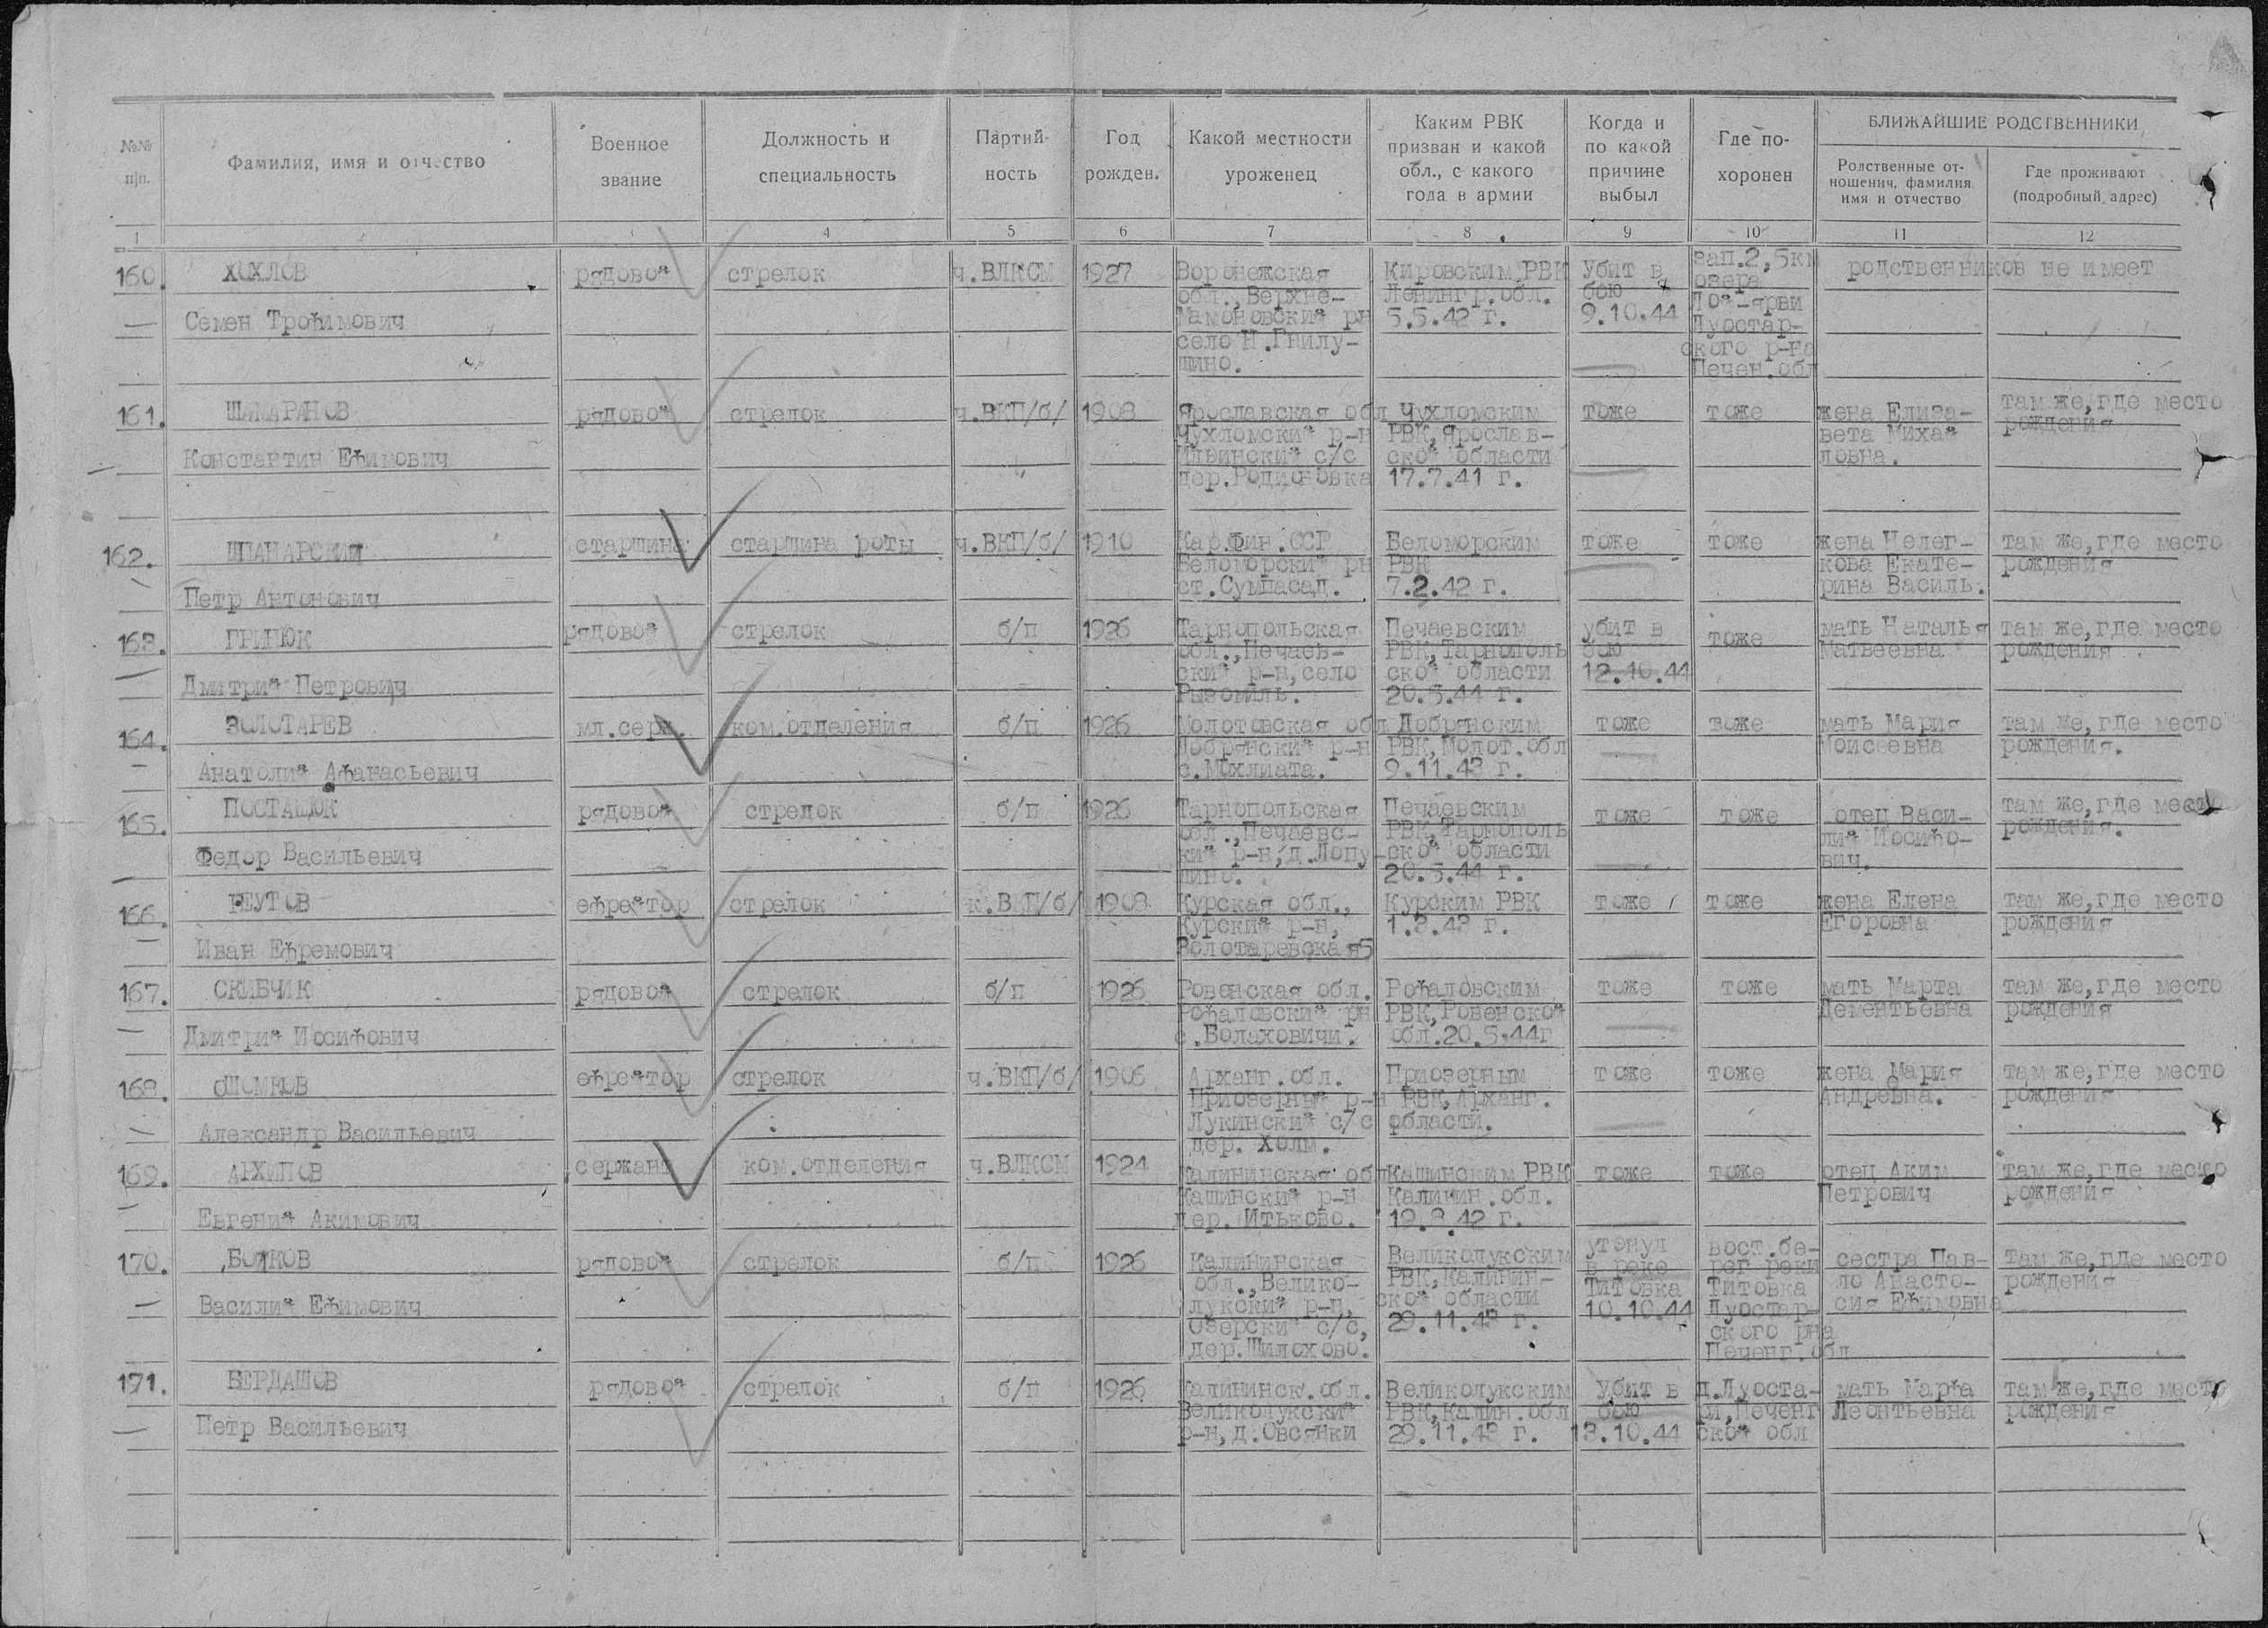 №№ п/п.
Фамилия, имя и отчество
Военное звание
Должность и специальность
Партий- ность
Год рожден.
Какой местности уроженец
Каким РВК призван и какой обл., с какого года в армии
Когда и по какой причине выбыл
Где по- хоронен
БЛИЖАЙШИЕ РОДСТВЕННИКИ
Родственные от- ношения, фамилия имя и отчество
Где проживают (подробный адрес)
1 3 4 5 6 7 8 9 10 11 12
160. ХОХЛОВ
Семен Трофимович
рядовой
стрелок
ч.ВЛКСМ
1927
Воронежская
обл.,Верхне-
Мамоновский рн
село Н.Гнилу-
шино.
Кировским РВК
Ленингр.обл.
5.5.42 г.
Убит в
бою
9.10.44
зап.2,5км
озера
Лоа-ярви
Луостар-
ского р-на
Печен.обл
родственников не имеет
161. ШАМАРАНОВ
Константин Ефимович
рядовой
стрелок
ч.ВКП/б/
1908
Ярославская обл
Чухломский р-н
Ильинский с/с
дер.Родионовка
Чухломским
РВК,Ярослав-
ской области
17.7.41 г.
тоже
тоже
жена Елиза-
вета Михай
ловна.
там же,где место
рождения
162. ШПАНАРСКИЙ
Петр Антонович
старшина
старшина роты
ч.ВКП/б/
1910
Кар.Фин.ССР
Беломорский рн
ст.Сумпасад.
Беломорским
РВК
7.2.42 г.
тоже
тоже
жена Нелег-
кова Екате-
рина Василь.
там же,где место
рождения
163. ГРИНЮК
Дмитрий Петрович
рядовой
стрелок
б/п
1926
Тарнопольская
обл.,Печаев-
ский р-н,село
Рыдомиль.
Печаевским
РВК,Тарнополь
ской области
20.5.44 г.
убит в
бою
12.10.44
тоже
мать Наталья
Матвеевна
там же,где место
рождения
164. ЗОЛОТАРЕВ
Анатолий Афанасьевич
мл.серж.
ком.отделения
б/п
1926
Молотовская обл
Добрянский р-н
с.Мохлиата.
Добрянским
РВК,Молот.обл
9.11.43 г.
тоже
тоже
мать Мария
Моисеевна
там же,где место
рождения.
165. ПОСТАЩЮК
Федор Васильевич
рядовой
стрелок
б/п
1926
Тарнопольская
обл.,Печаевс-
кий р-н,д.Лопу-
шино.
Печаевским
РВК,Тарнополь
ской области
20.5.44 г.
тоже
тоже
отец Васи-
лий Иосифо-
вич.
там же,где место
рождения.
166. РЕУТОВ
Иван Ефремович
ефрейтор
стрелок
к.ВКП/б/
1908
Курская обл.,
Курский р-н,
Золотаревская5
Курским РВК
1.3.43 г.
тоже
тоже
жена Елена
Егоровна
там же,где место
рождения
167. СКИБЧИК
Дмитрий Иосифович
рядовой
стрелок
б/п
1926
Ровенская обл.
Рофаловский рн
с.Волаховичи.
Рофаловским
РВК,Ровенской
обл.20.5.44г
тоже
тоже
мать Марта
Дементьевна
там же,где место
рождения
168. ОШОМКОВ
Александр Васильевич
ефрейтор
стрелок
ч.ВКП/б/
1906
Арханг.обл.
Приозерный р-н
Лукинский с/с
дер. Холм.
Приозерным
РВК,Арханг.
области.
тоже
тоже
жена Мария
Андревна.
там же,где место
рождения
169. АРХИПОВ
Евгений Акимович
сержант
ком.отделения
ч.ВЛКСМ
1924
Калининская обл
Кашинский р-н
дер.Итьково.
Кашинским РВК
Калинин.обл.
19.8.42 г.
тоже
тоже
отец Аким
Петрович
там же,где место
рождения
170. БОЙКОВ
Василий Ефимович
рядовой
стрелок
б/п
1926
Калининская
обл.,Велико-
лукский р-н,
Озерский с/с,
дер.Шилохово.
Великолукским
РВК,Калинин-
ской области
29.11.43 г.
утонул
в реке
Титовка
10.10.44
вост.бе-
рег реки
Титовка
Луостар-
ского рна
Печенг.обл
сестра Пав-
ло Анасто-
сия Ефимовна
там же,где место
рождения
171. БЕРДАШОВ
Петр Васильевич
рядовой
стрелок
б/п
1926
Калининск.обл.
Великолукский
р-н,д.Овсянки
Великолукским
РВК,Калин.обл
29.11.43 г.
Убит в
бою
13.10.44
д.Луоста-
ри,Печенг
ской обл
мать Марфа
Леонтьевна
там же,где место
рождения